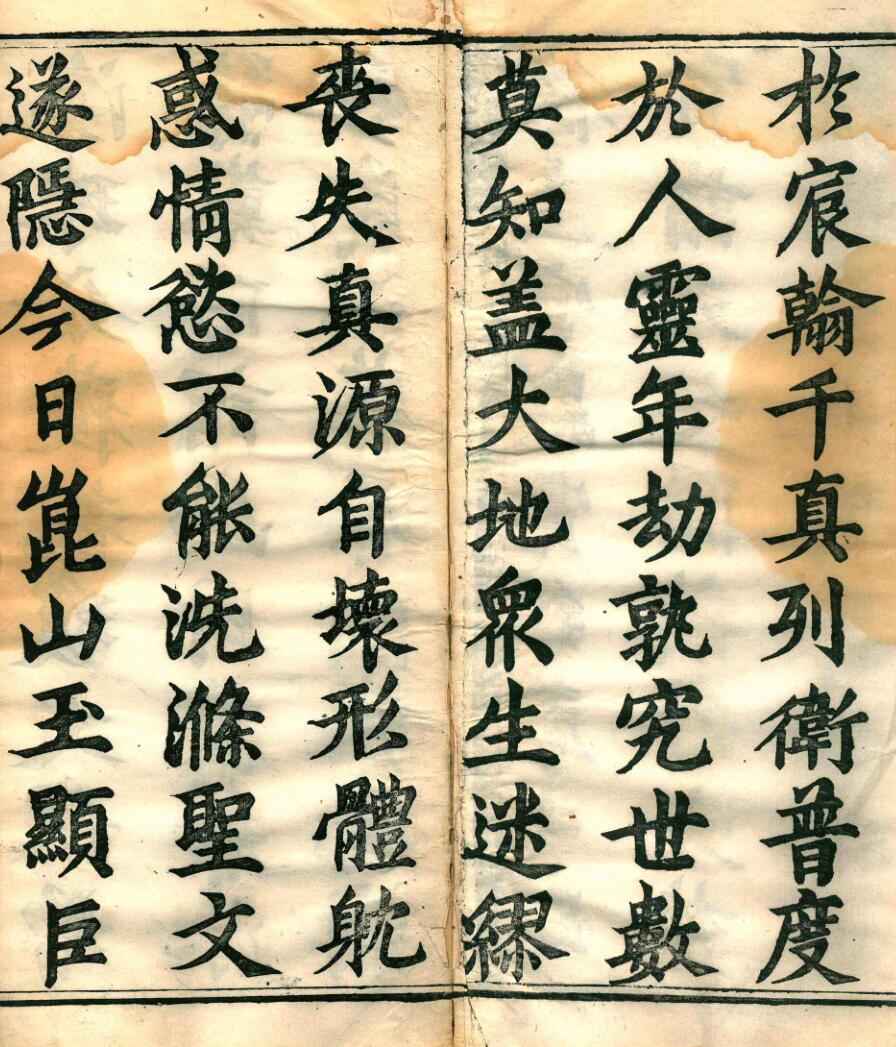 於宸翰千真列衛普度
於人靈年劫孰究世數
莫知盖大地眾生迷繆
喪失真源自壞形體躭
惑情慾不能洗滌聖文
遂隱今日崑山玉顯臣